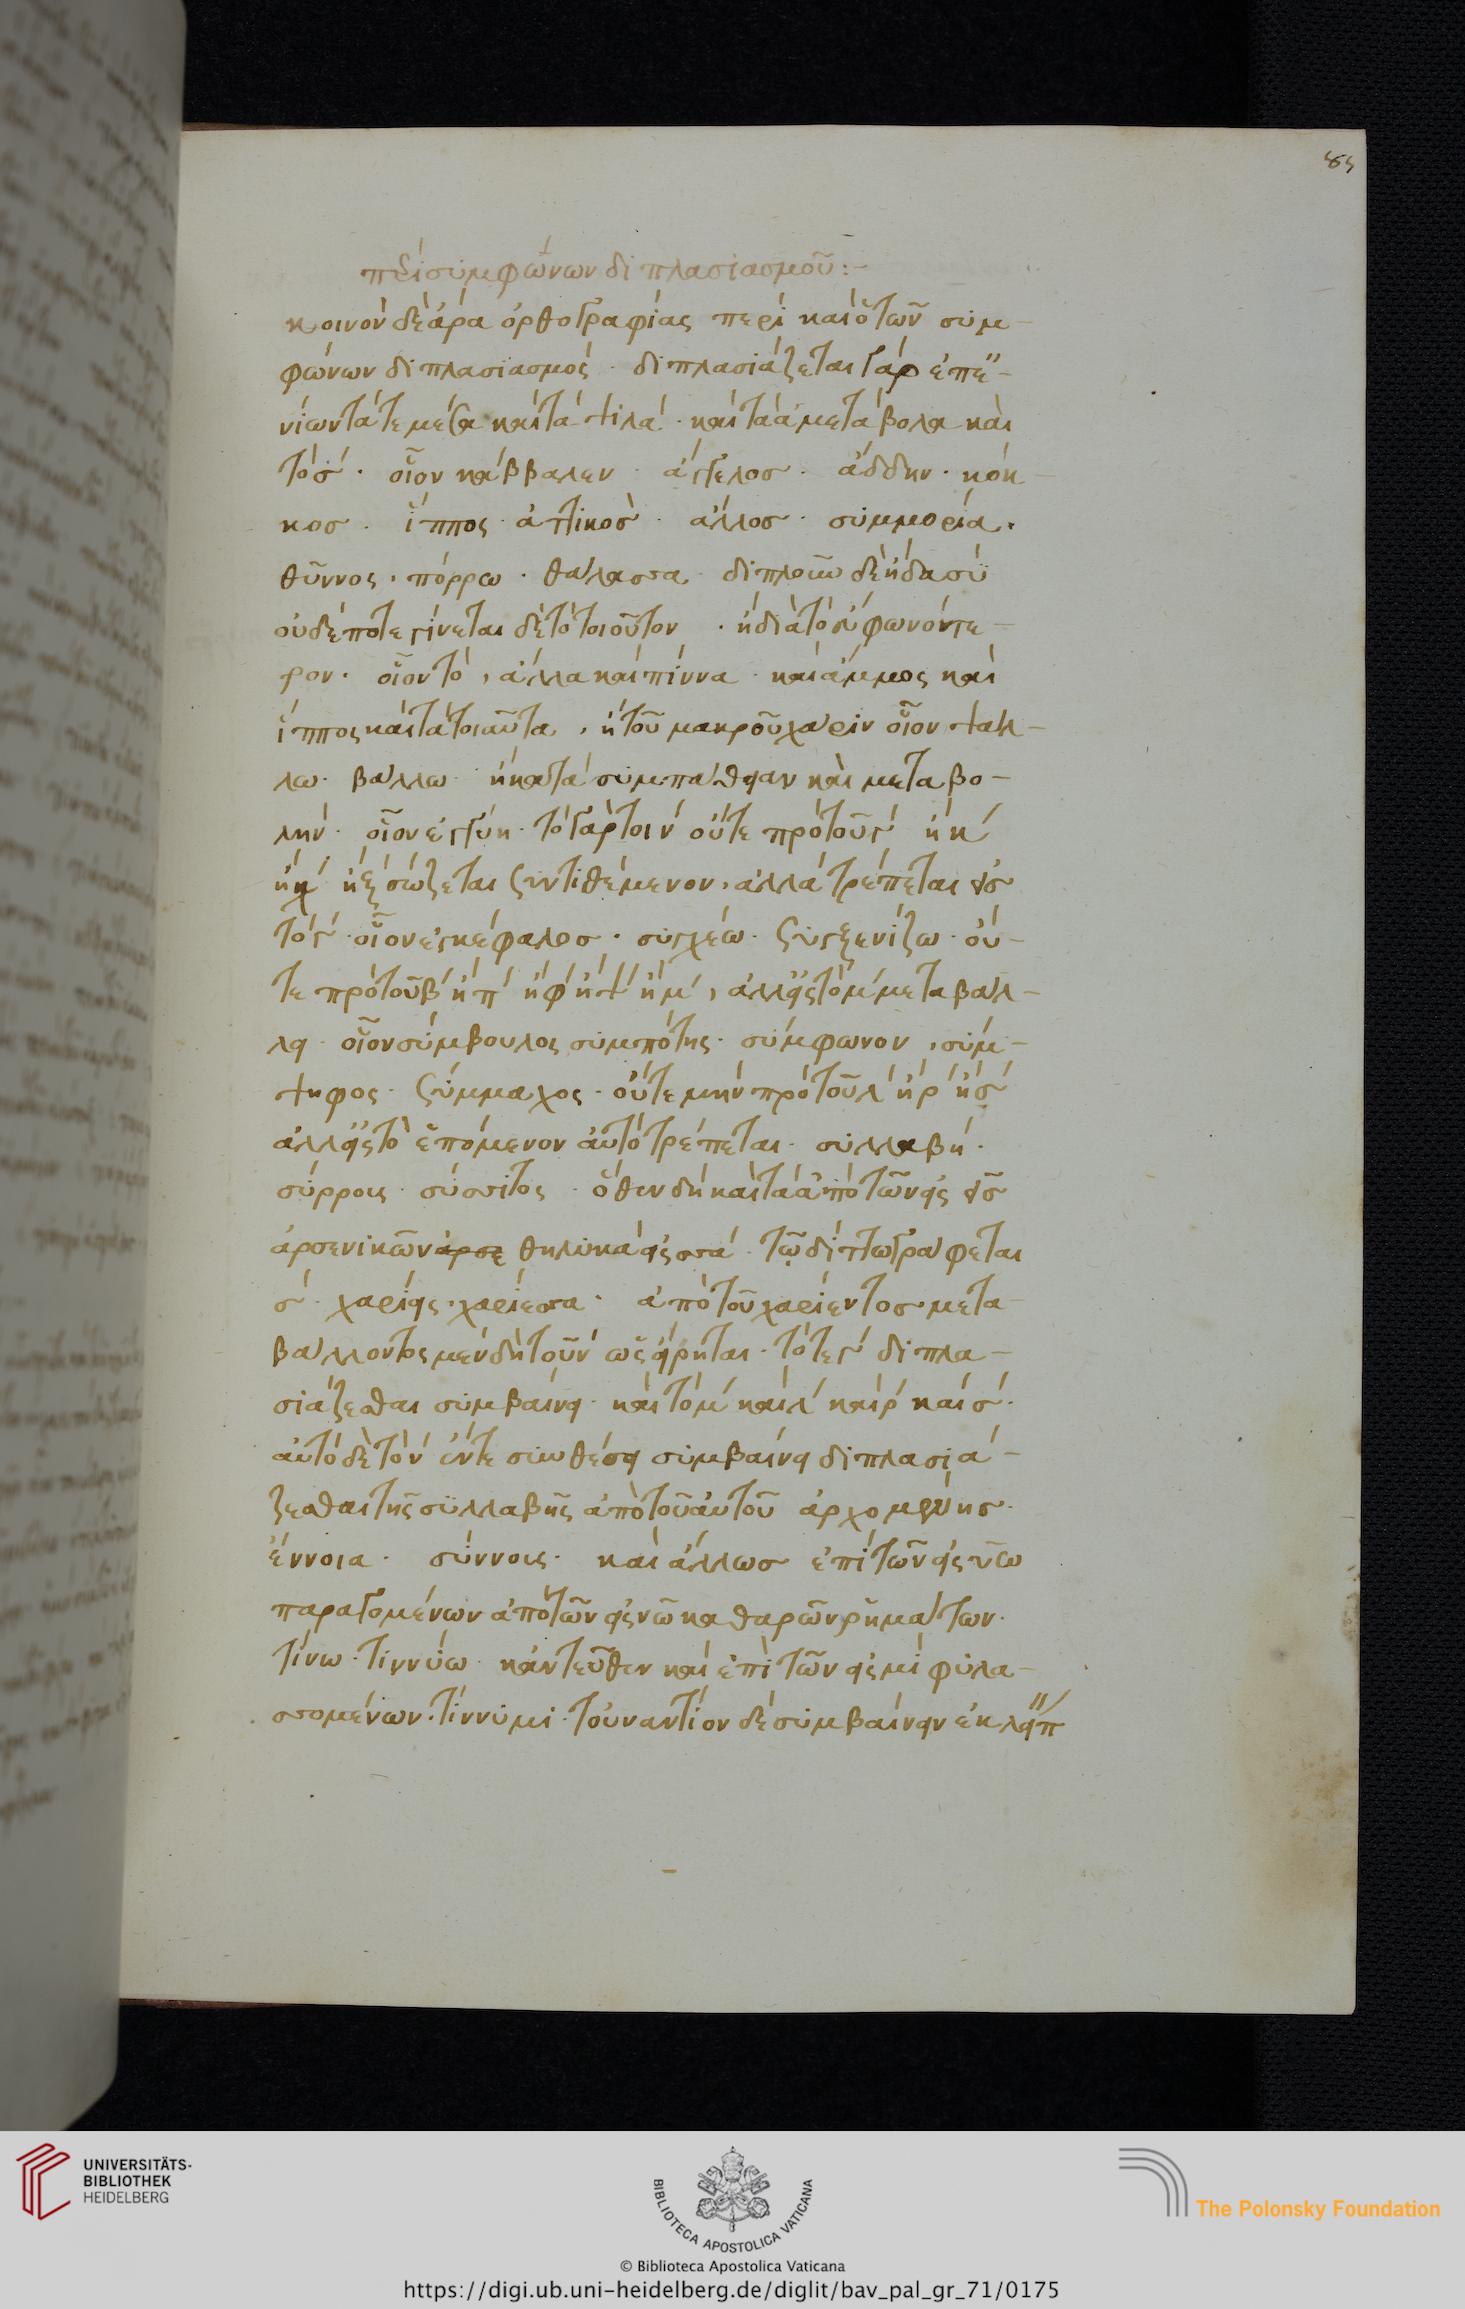 85
περὶ συμφώνων διπλασιασμοῦ:-
κοινὸν δὲ ἆρα ὀρθογραφίας περὶ καὶ ὁ τῶν συμ-
φώνων διπλασιασμός · διπλασιάζεται γὰρ ἐπ' ἐ-
νίων τά τε μέσα καὶ τὰ ψιλά · καὶ τὰ ἀμετάβολα καὶ
τὸ σ΄ · οἷον κάββαλεν · ἄγγελος · ἄδδην · κόκ-
κος · ἵππος · ἀττικός · ἄλλος · συμμορία ·
θύννος · πόρρω · θάλασσα · διπλοῦν δὲ ἢ δασὺ
οὐδέποτε γίνεται δὲ τὸ τοιοῦτον · ἢ διὰ τὸ εὐφωνότε-
ρον · οἷον τὸ, ἄλλα καὶ πίννα · καὶ ἄμμος καὶ
ἵππος καὶ τὰ τοιαῦτα, ἢ τοῦ μακροῦ χάριν οἷον ψάλ-
λω · βάλλω · ἢ κατὰ συμπάθειαν καὶ μεταβο-
λήν · οἷον ἐγγύη · τὸ γάρ τοι ν΄ οὔτε πρὸ τοῦ γ΄ ἢ κ΄
ἢ χ΄ ἢ ξ΄ σώζεται συντιθέμενον, ἀλλὰ τρέπεται εἰς
τὸ γ΄ · οἷον ἐγκέφαλος · συγχέω · συγξενίζω · οὔ-
τε πρὸ τοῦ β΄ ἢ π΄ ἢ φ΄ ἢ ψ΄ ἢ μ΄, ἀλλ' εἰς τὸ μ΄ μεταβάλ-
λει · οἷον σύμβουλος συμπότης · σύμφωνον, σύμ-
ψηφος · σύμμαχος · οὔτε μὴν πρὸ τοῦ λ΄ ἢ ρ΄ ἢ σ΄
ἀλλ' εἰς τὸ ἑπόμενον αὐτὸ τρέπεται · συλλαβή ·
σύρρους · σύσσιτος · ὅθεν δὴ καὶ τὰ ἀπὸ τῶν εἰς εις
ἀρσενικῶν αρσε θηλυκὰ εἰς σσα · τῷ διττῷ γράφεται
σ΄ · χαρίεις · χαρίεσσα · ἀπὸ τοῦ χαρίεντος · μετα-
βάλλοντος μὲν δὴ τοῦ ν΄ ὡς εἴρηται · τό τε γ΄ διπλα-
σιάζεσθαι συμβαίνει · καὶ τὸ μ΄ καὶ λ΄ καὶ ρ΄ καὶ σ΄ ·
αὐτὸ δὲ τὸ ν΄ ἔν τε συνθέσει συμβαίνει διπλασιά-
ζεσθαι τῆς συλλαβῆς ἀπὸ τοῦ αὐτοῦ ἀρχομένης ·
ἔννοια · σύννους · καὶ ἄλλως ἐπὶ τῶν εἰς νύω
παραγομένων ἀπὸ τῶν εἰς νω καθαρῶν ῥημάτων ·
τίνω · τιννύω · κἀντεῦθεν καὶ ἐπὶ τῶν εἰς μι φυλα-
σσομένων · τίννυμι · τοὐναντίον δὲ συμβαίνειν ἐκλείπ
UNIVERSITÄTS-
BIBLIOTHEK
HEIDELBERG
BIBLIOTECA APOSTOLICA VATICANA
The Polonsky Foundation
© Biblioteca Apostolica Vaticana
https://digi.ub.uni-heidelberg.de/diglit/bav_pal_gr_71/0175